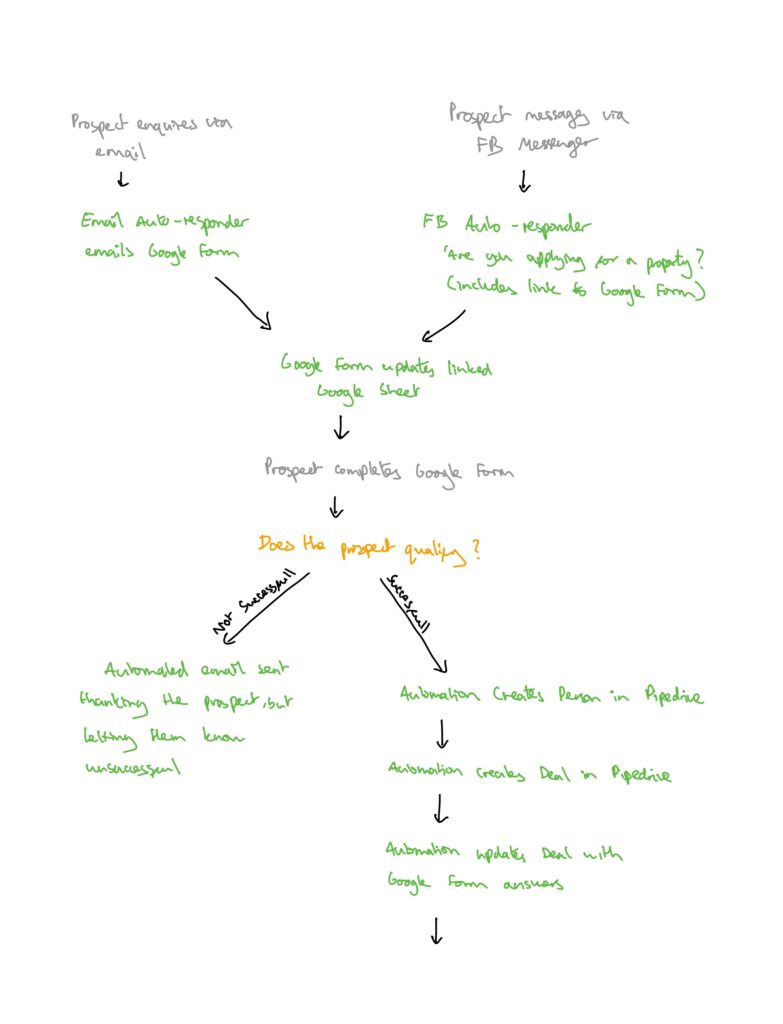 Prospect enquires via
email
Prospect messages via
FB Messenger
Email Auto-responder
emails Google Form
FB Auto-responder
'Are you applying for a property?
(includes link to Google Form)
Google Form updates linked
Google Sheet
Prospect completes Google Form
Does the prospect qualify?
Not Successfull
Successfull
Automated email sent
thanking the prospect, but
letting them know
unsuccessful
Automation Creates Person in Pipedrive
Automation creates Deal in Pipedrive
Automation updates Deal with
Google Form answers